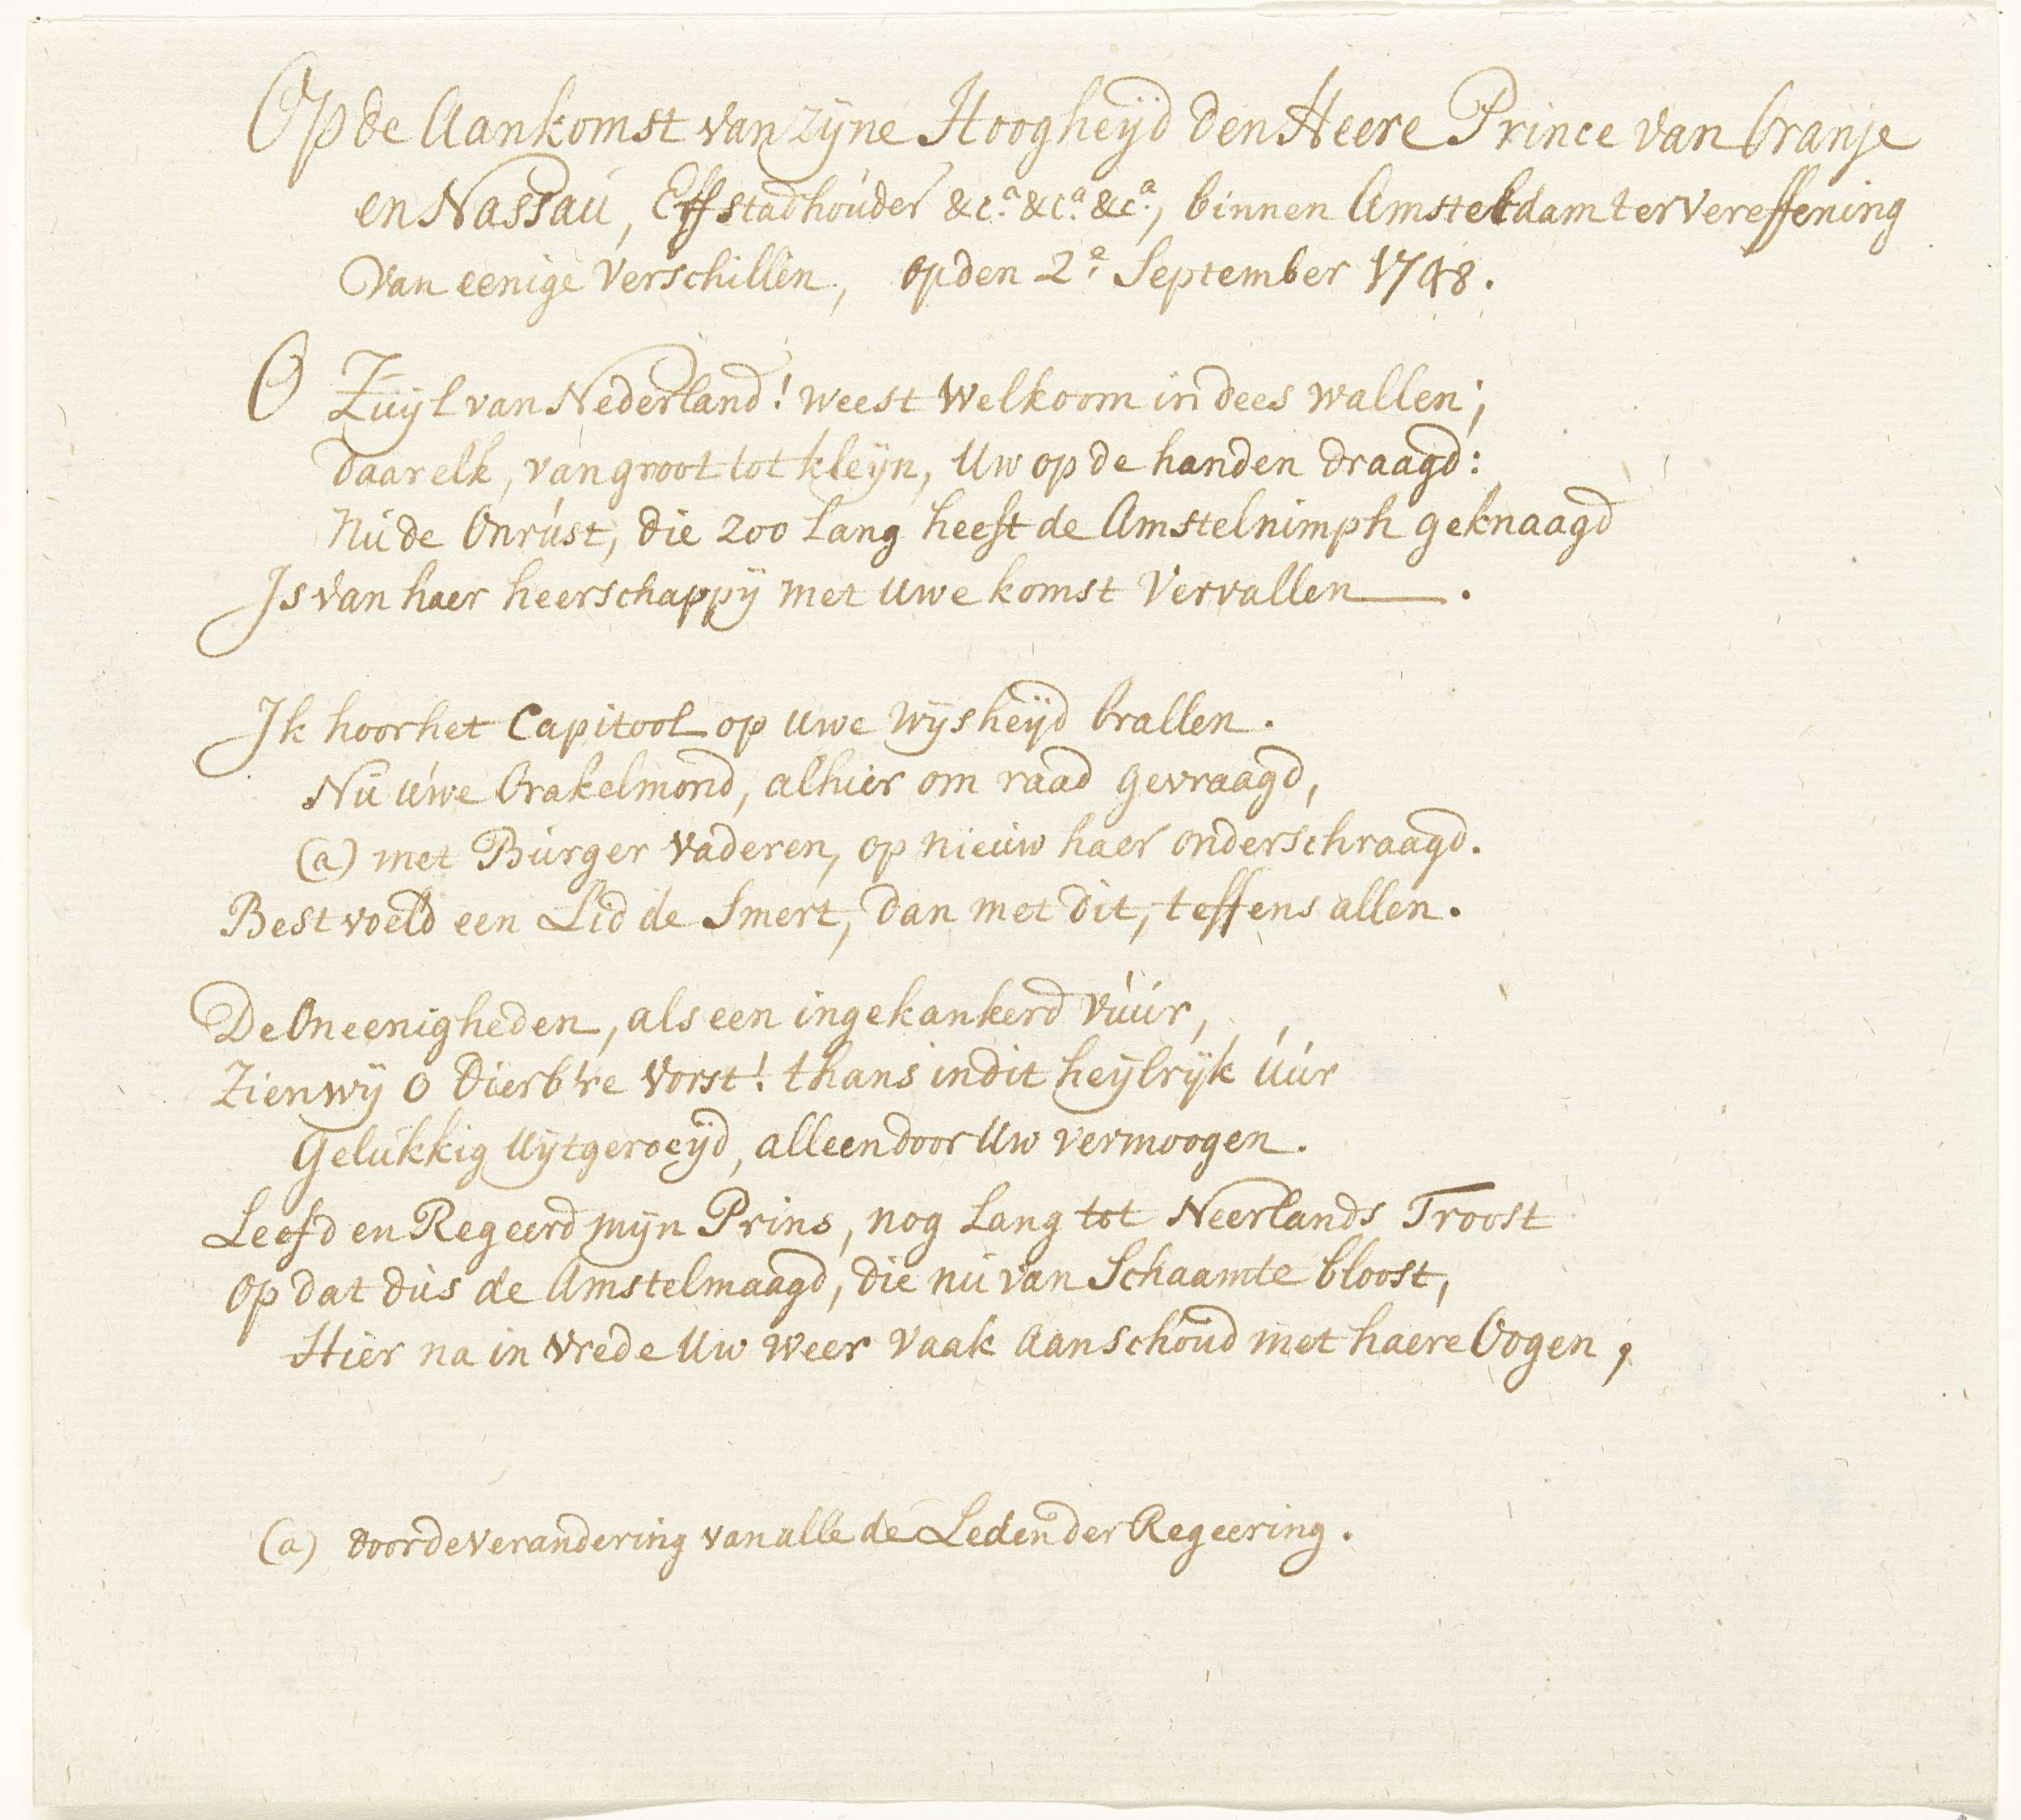 Op de Aankomst van zÿne Hoogheÿd den Heere Prince van Oranje
en Nassau, Effstadhouder &c.a &c.a &c.a, binnen Amsteldam ter vereffening
van eenige verschillen, op den 2e September 1748.
O Zuÿl van Nederland! weest welkoom in dees wallen;
daar elk, van groot tot kleÿn, Uw op de handen draagd:
Nu de Onrust, die zoo lang heeft de Amstelnimph geknaagd
Is van haer heerschappÿ met uwe komst vervallen —.
Ik hoor het Capitool op uwe wÿsheÿd brallen.
Nu uwe Orakelmond, alhier om raad gevraagd,
(a) met Burger vaderen, op nieuw haer onderschraagd.
Best voeld een Lid de Smert, dan met dit, teffens allen.
De Oneenigheden, als een ingekankerd vuur,
Zien wÿ o dierb're Vorst! thans in dit heÿlrÿk uur
Gelukkig uÿtgeroeÿd, alleen door Uw vermoogen.
Leefd en Regeerd mÿn Prins, nog lang tot Neerlands Troost
op dat dus de Amstelmaagd, die nu van Schaamte bloost,
Hier na in vrede Uw weer vaak aanschoud met haere Oogen;
(a) door de verandering van alle de Leden der Regeering.